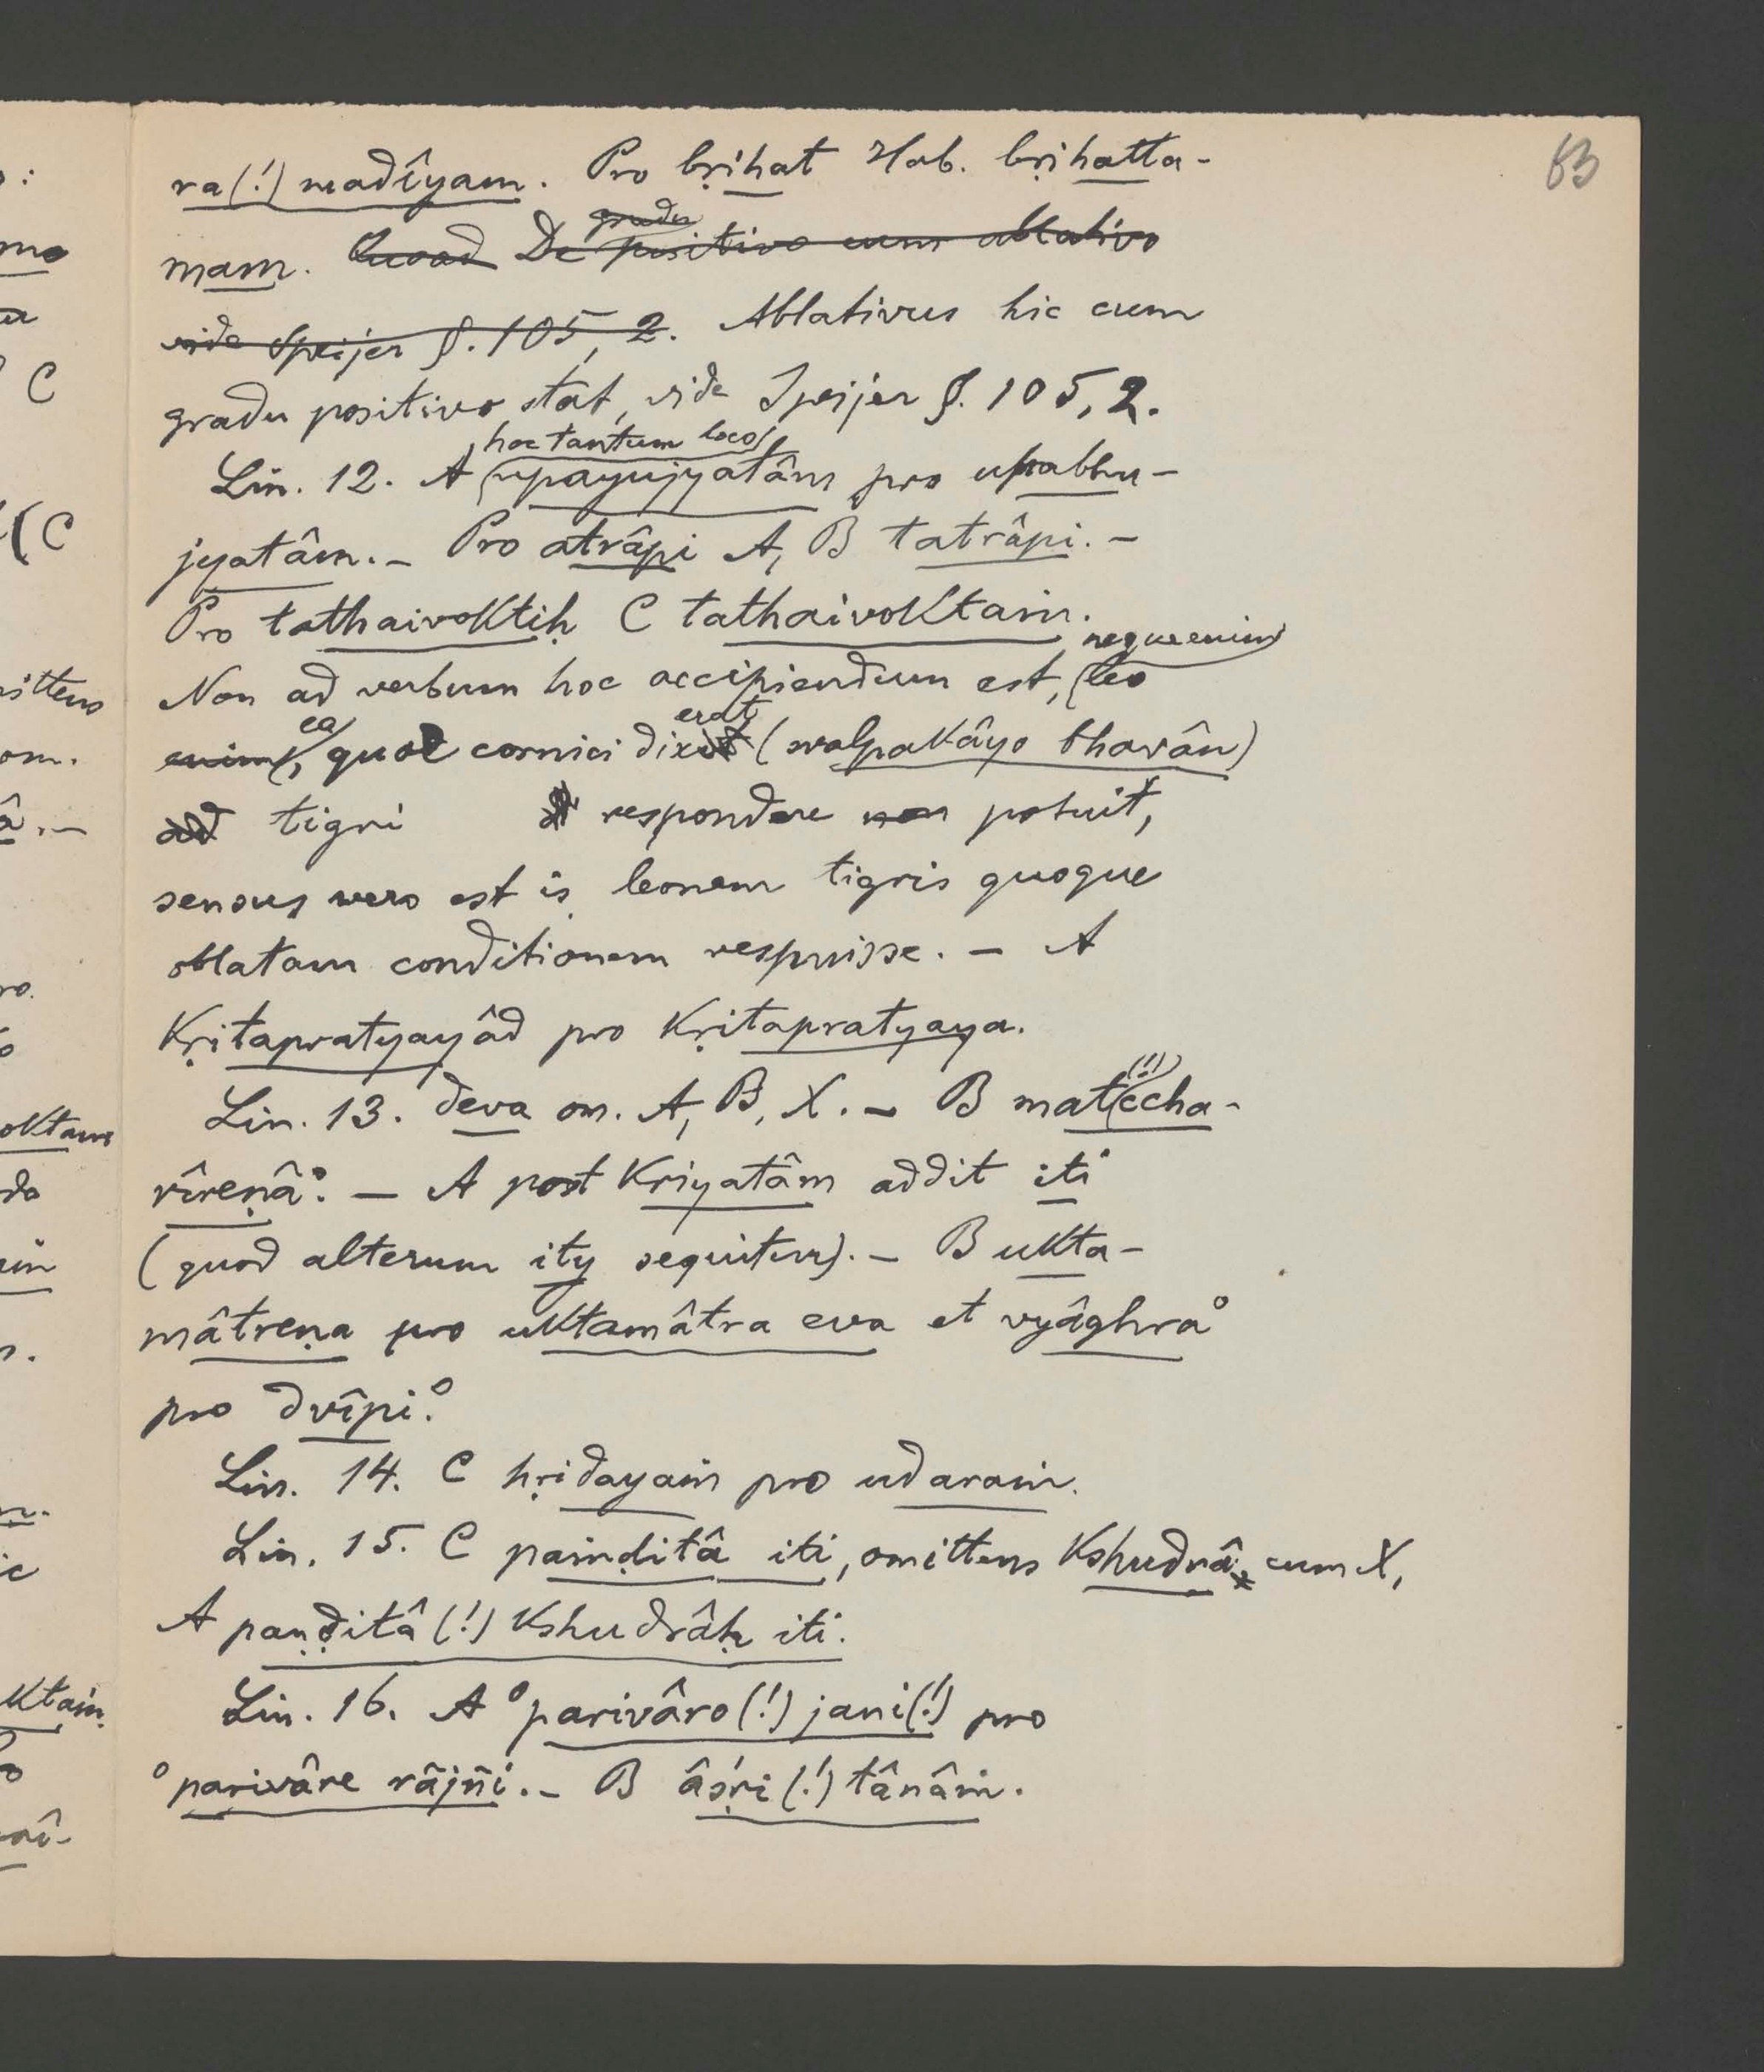 63
ra(!) madîyam. Pro bṛihat Hab. bṛihatta-
mam. Quoad De gradu positivo cum ablativo
vide Speijer §. 105, 2. Ablativus hic cum
gradu positivo stat, vide Speijer §. 105, 2.
Lin. 12. A hoc tantum loco upayujyatâm pro upabhu-
jyatâm. – Pro atrâpi A, B tatrâpi. –
Pro tathaivoktiḥ C tathaivoktaṁ.
Non ad verbum hoc accipiendum est, neque enim leo
enim, ea quae cornici dixerat (svalpakâyo bhavân)
ad tigri respondere non potuit,
sensus vero est is, leonem tigris quoque
oblatam conditionem respuisse. – A
kṛitapratyayâd pro kṛitapratyaya.
Lin. 13. deva om. A, B, X. – B mat(!)ccha-
rîreṇâ°. – A post kriyatâm addit iti
(quod alterum ity sequitur). – B ukta-
mâtreṇa pro uktamâtra eva et vyâghra°
pro dvîpi°.
Lin. 14. C hṛidayaṁ pro udaraṁ.
Lin. 15. C paṁḍitâ iti, omittens kshudrâḥ cum X,
A paṇḍitâ (!) kshudrâḥ iti.
Lin. 16. A °parivâro(!) jani(!) pro
°parivâre râjñi. – B âśṛi(!)tânâṁ.